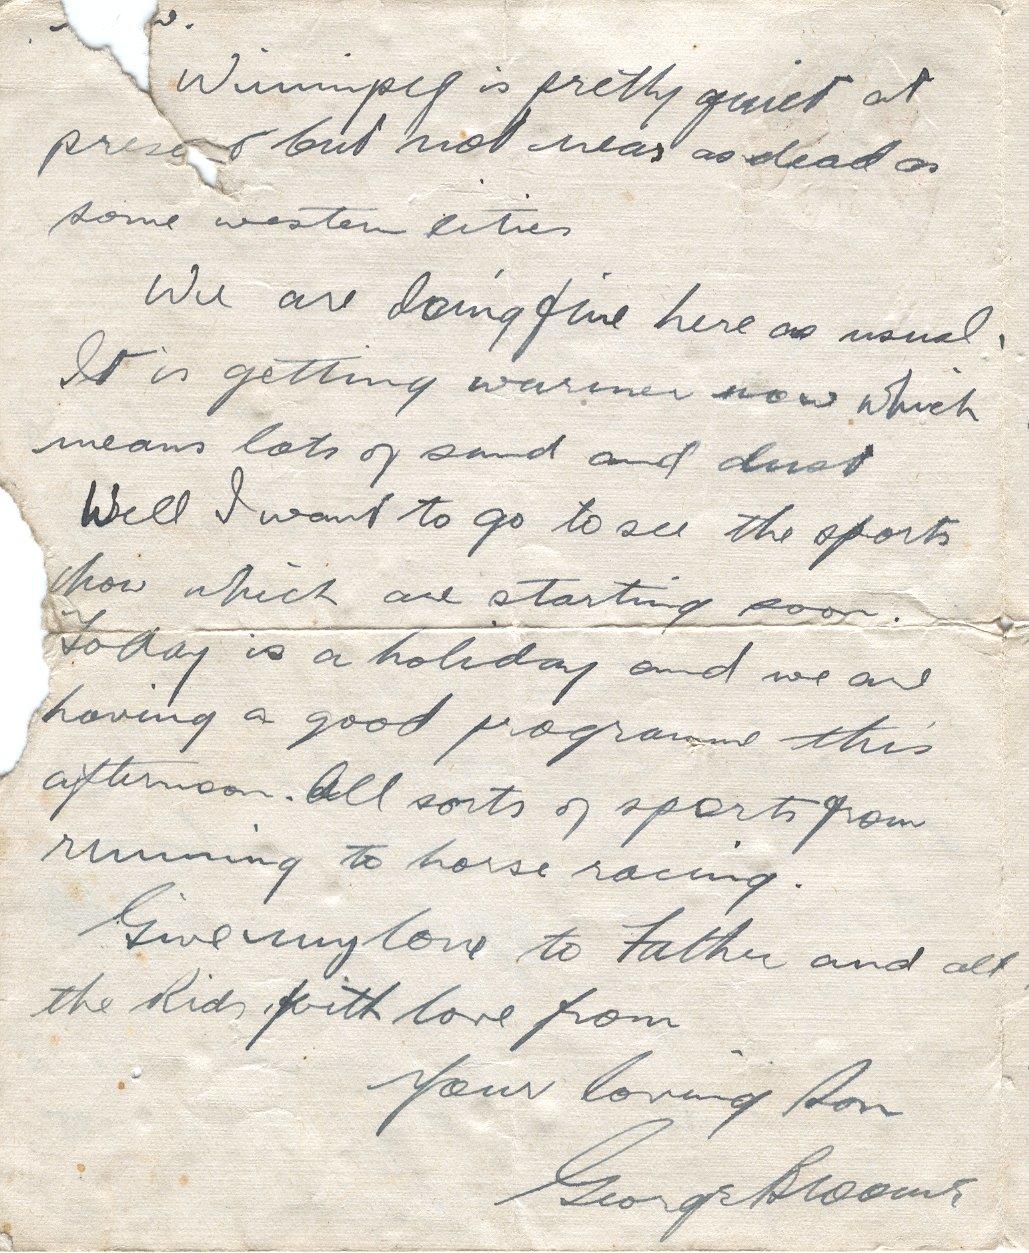 Winnipeg is pretty quiet at
present but not near as dead as
some western cities
We are doing fine here as usual.
It is getting warmer now which
means lots of sand and dust
Well I want to go to see the sports
show which are starting soon.
Today is a holiday and we are
having a good programme this
afternoon. All sorts of sports from
running to horse racing.
Give my love to Father and all
the Kids, with love from
Your loving Son
George